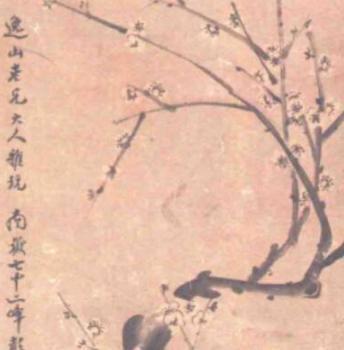 逸山老兄大人雅玩 南嶽七十二峰彭